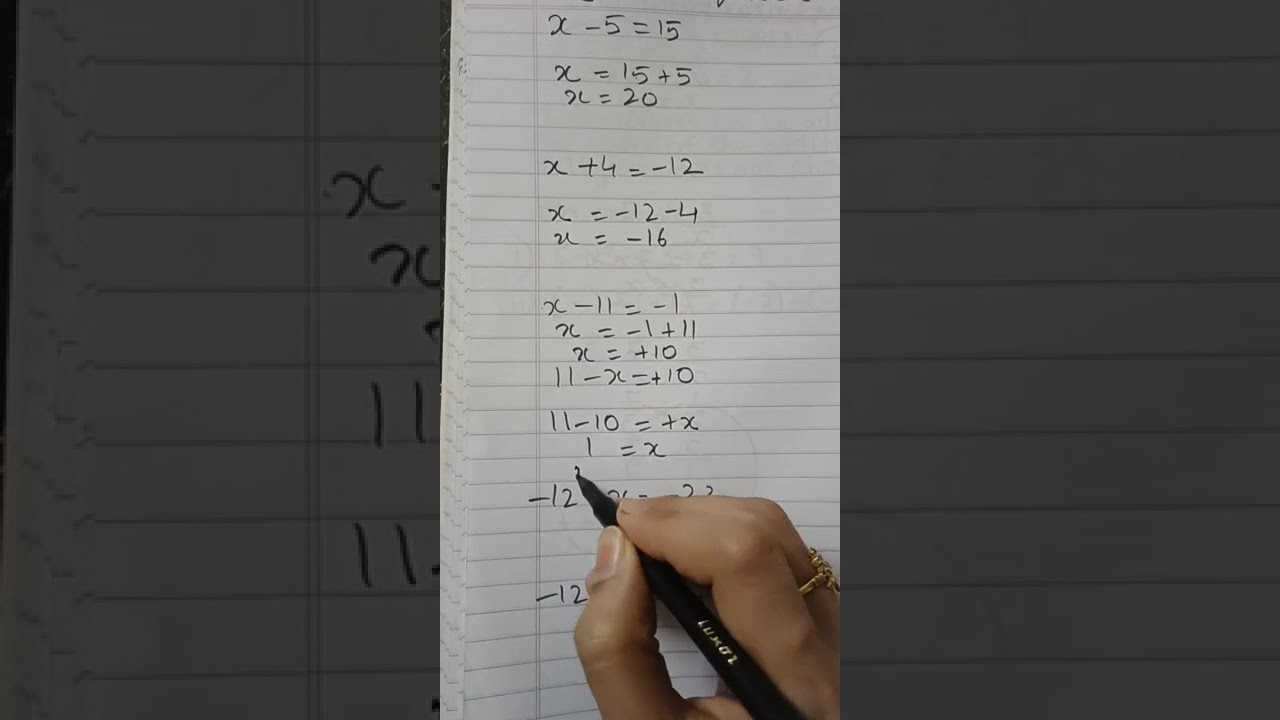 x - 5 = 15
x = 15 + 5
x = 20
x + 4 = -12
x = -12 - 4
x = -16
x - 11 = -1
x = -1 + 11
x = +10
11 - x = +10
11 - 10 = +x
1 = x
-12
-12
LUXOR